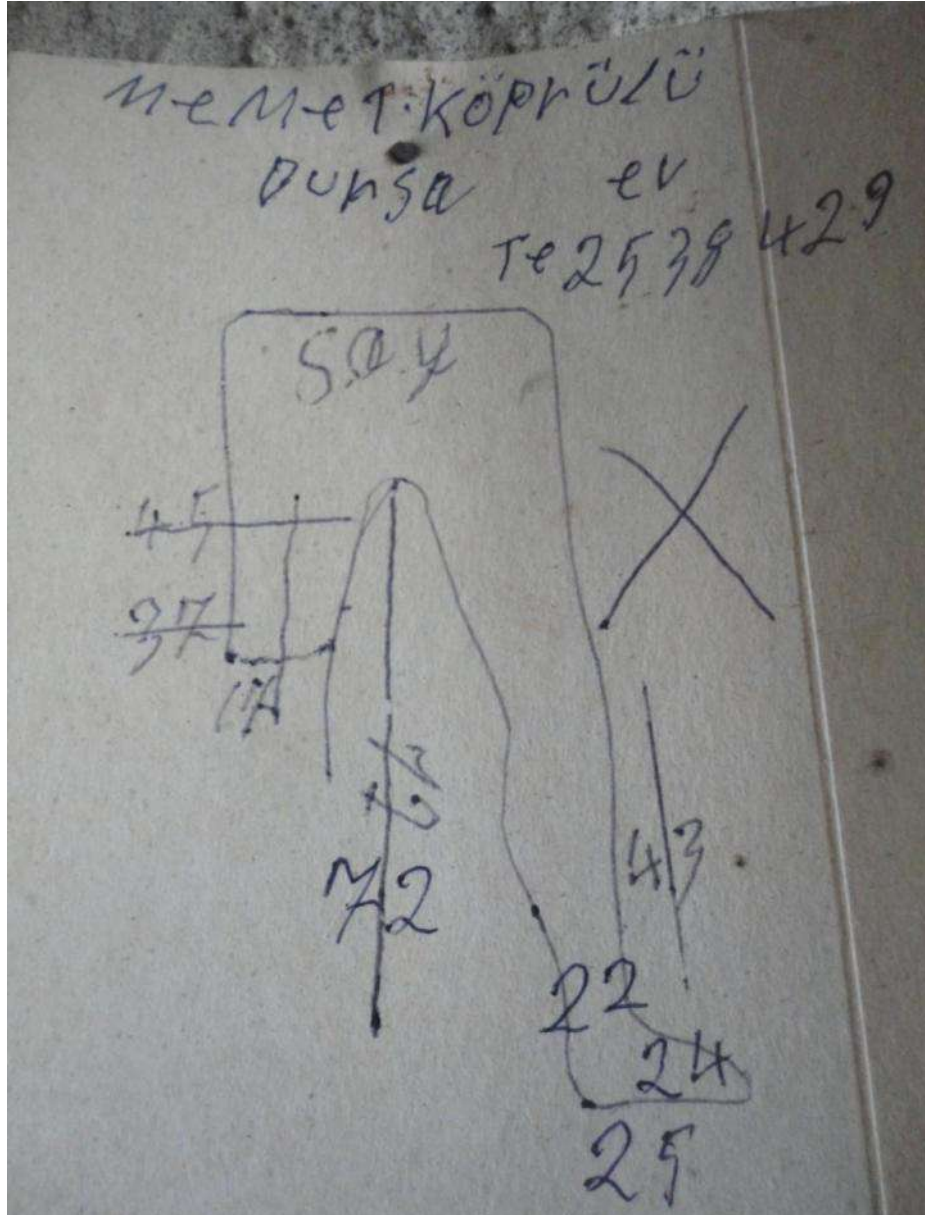 MeMeT.Köprülü
Bursa ev
Te 2538429
45
37
72
43
22
24
25